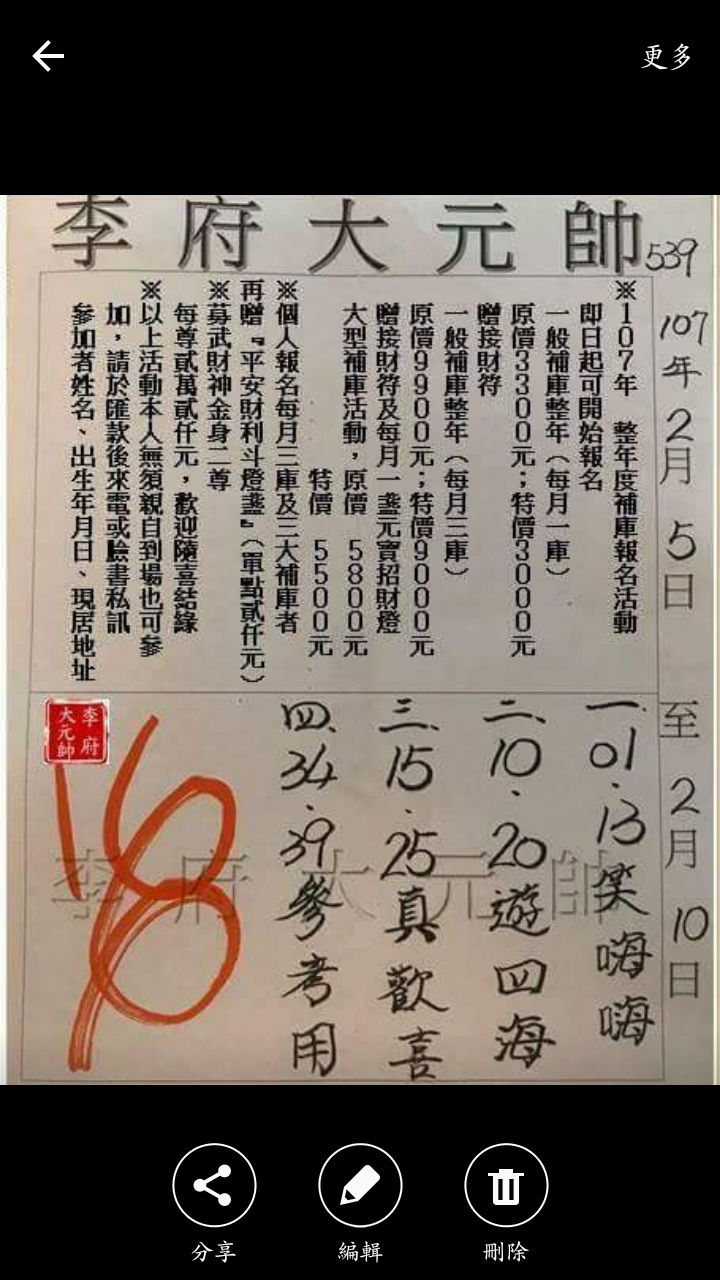 更多
李府大元帥
539
107年2月5日 至 2月10日
※107年 整年度補庫報名活動
即日起可開始報名
一般補庫整年（每月一庫）
原價3300元；特價3000元
贈接財符
一般補庫整年（每月三庫）
原價9900元；特價9000元
贈接財符及每月一盞元寶招財燈
大型補庫活動，原價 5800元
特價 5500元
※個人報名每月三庫及三大補庫者
再贈『平安財利斗燈盞』（單點貳仟元）
※募武財神金身二尊
每尊貳萬貳仟元，歡迎隨喜結緣
※以上活動本人無須親自到場也可參
加，請於匯款後來電或臉書私訊
參加者姓名、出生年月日、現居地址
一、01．13笑嗨嗨
二、10．20遊四海
三、15．25真歡喜
四、34．39參考用
李府大元帥
李府大元帥
分享
編輯
刪除